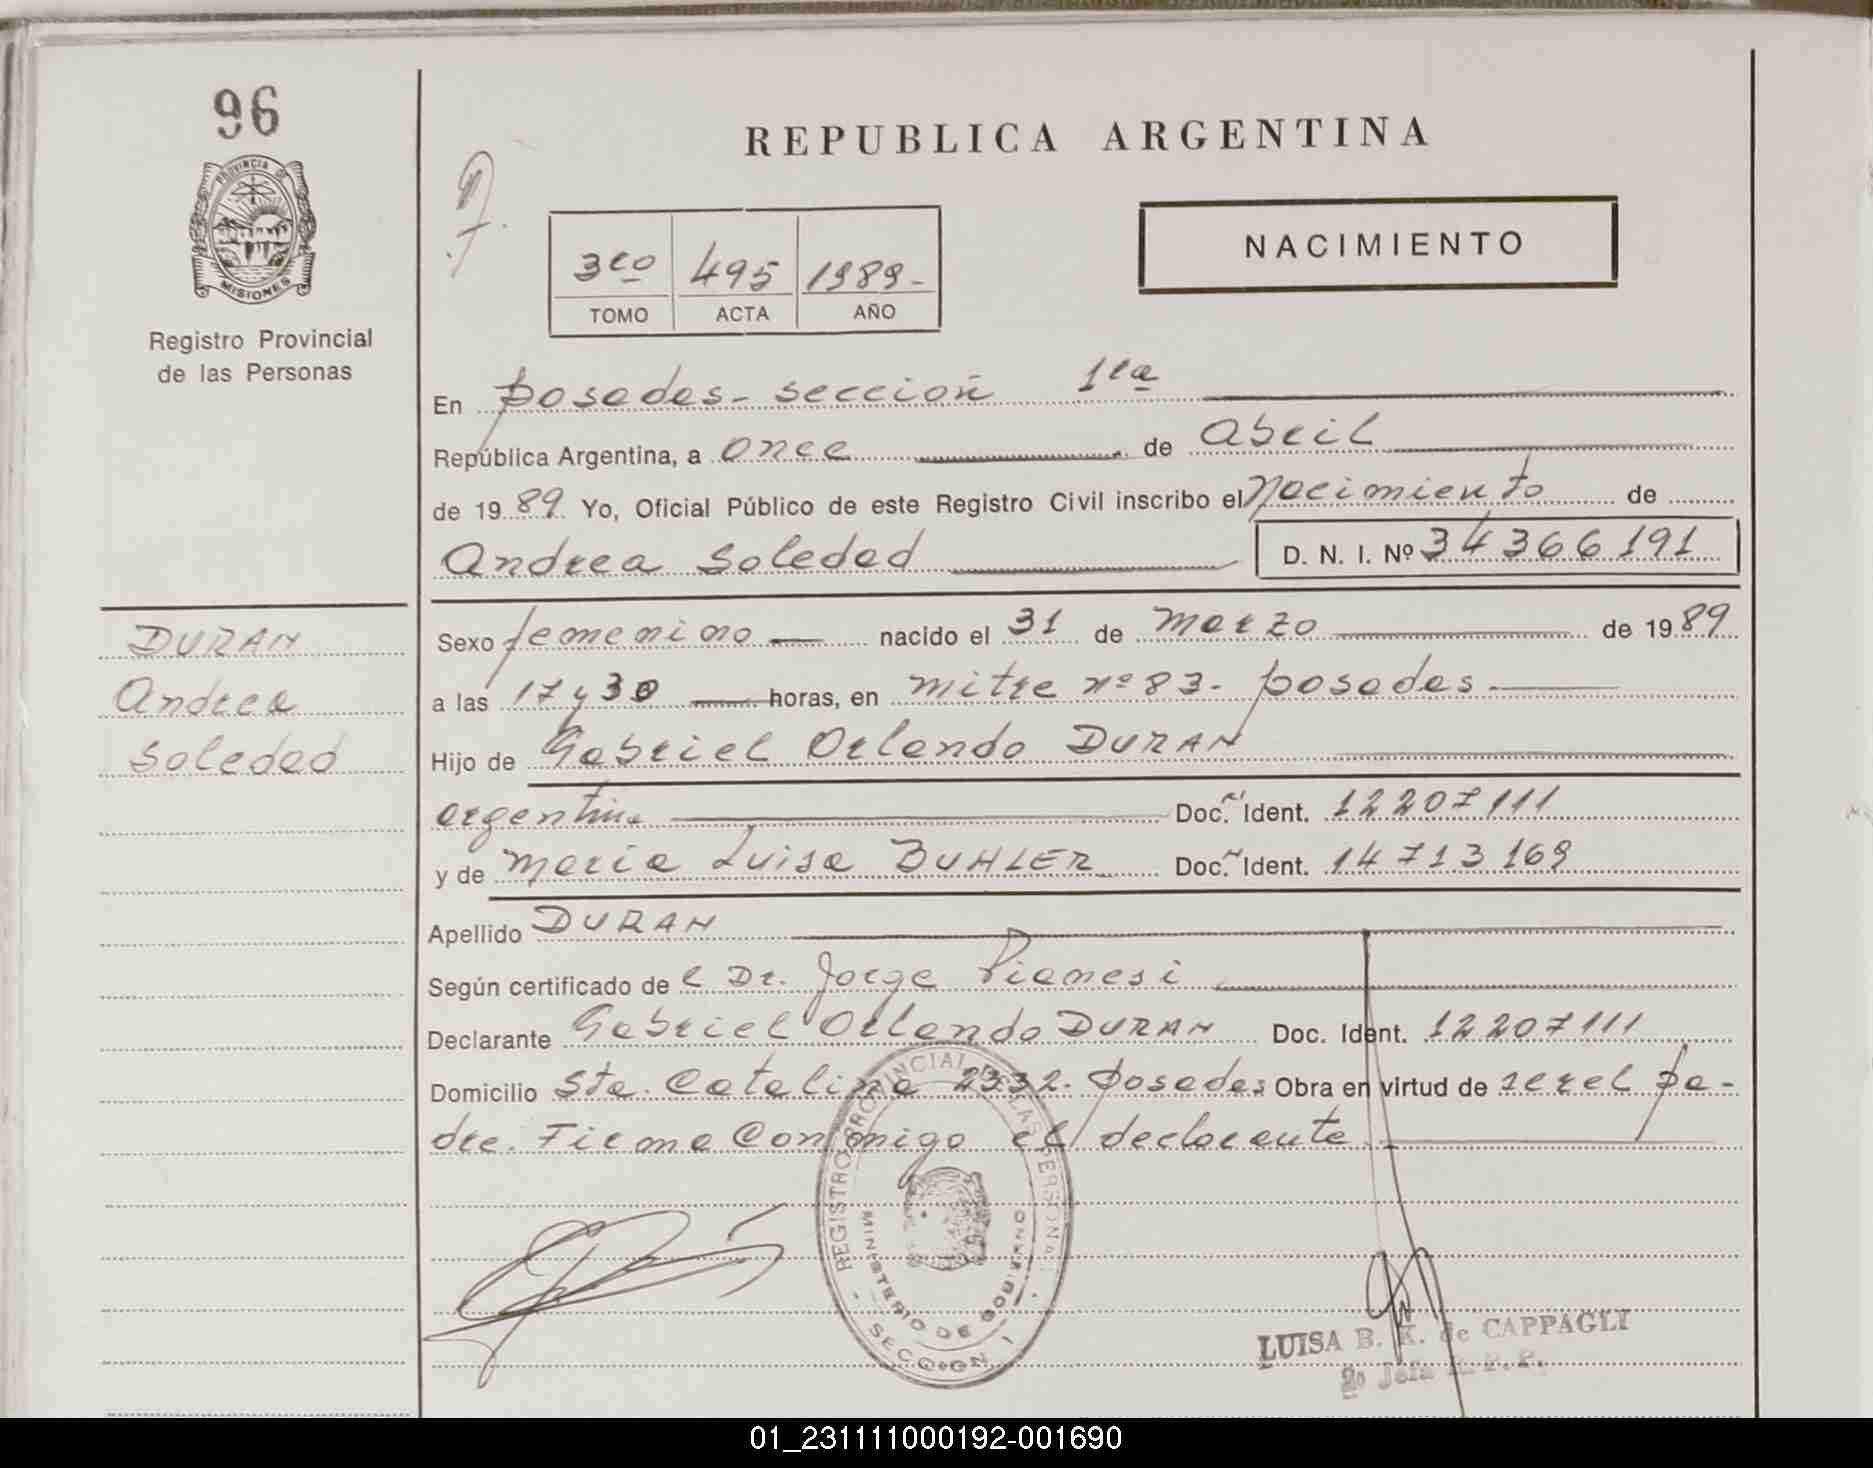 96
PROVINCIA DE
MISIONES
Registro Provincial
de las Personas
REPUBLICA ARGENTINA
NACIMIENTO
3ro 495 1989-
TOMO ACTA AÑO
En Posadas - sección 1ra
República Argentina, a once de Abril
de 1989 Yo, Oficial Público de este Registro Civil inscribo el Nacimiento de
Andrea Soledad D. N. I. Nº 34366191
DURAN
Andrea
Soledad
Sexo femenino nacido el 31 de Marzo de 1989
a las 17 y 30 horas, en Mitre nº 83 - Posadas
Hijo de Gabriel Orlando DURAN
argentina Doc. Ident. 12207111
y de María Luisa BUHLER Doc. Ident. 14713169
Apellido DURAN
Según certificado de l Dr. Jorge Pianesi
Declarante Gabriel Orlando DURAN Doc. Ident. 12207111
Domicilio Sta. Catalina 2332 - Posadas Obra en virtud de ser el pa-
dre. Firma Conmigo el declarante
REGISTRO PROVINCIAL DE LAS PERSONAS
MINISTERIO DE GOBIERNO
SECCION 1
LUISA B. K. de CAPPAGLI
2º Jefa R. P. P.
01_231111000192-001690